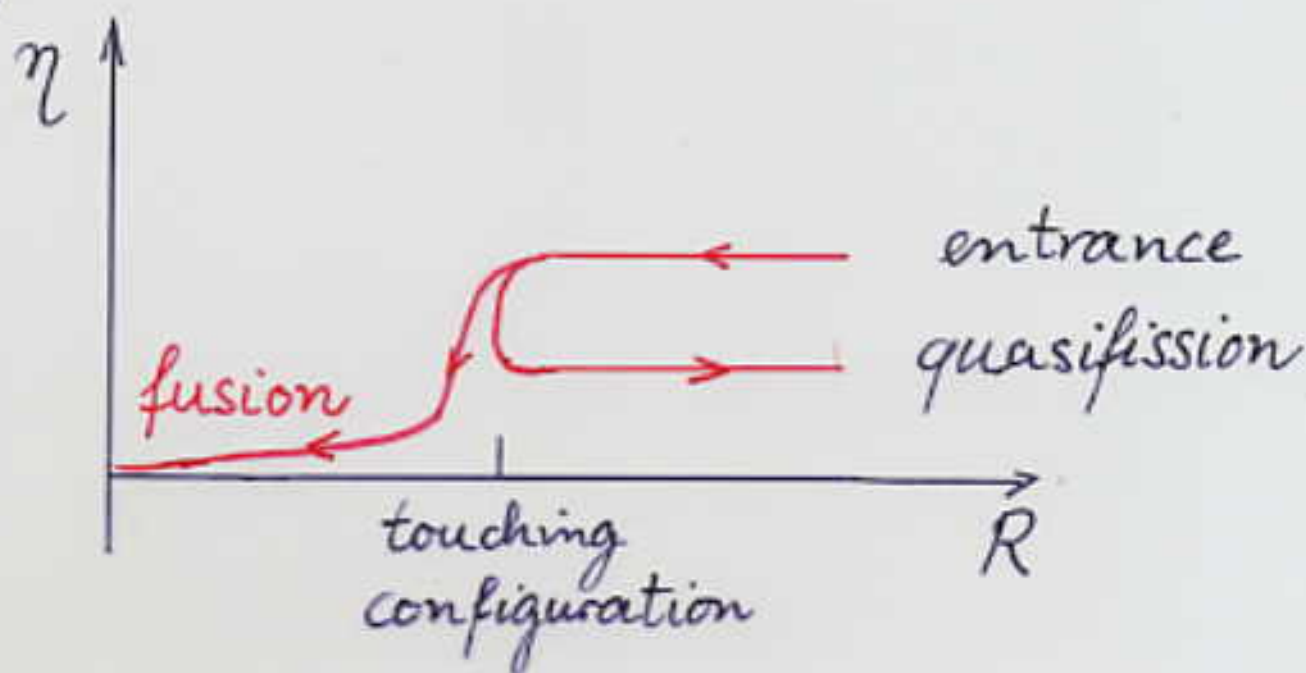 η
entrance
quasifission
fusion
touching
configuration
R